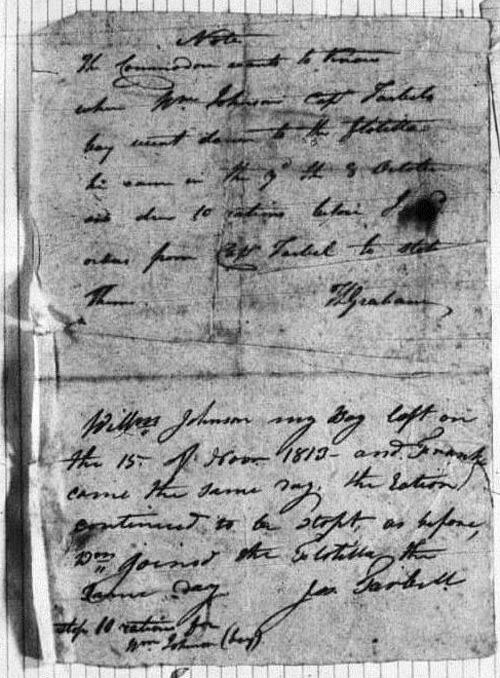 Note
The Commodore wants to know
when Wm Johnson capt Tarbels
boy went down to the flotilla
he came in the 9th 8 October
and drew 10 rations before I
orders from Capt Tarbel to stop
them. Graham
Willm Johnson my Boy left on
the 15. of Novr 1813 - and Frank
came the same day. the Ration
continued to be stopt as before,
Wm joined the Flotilla the
same day Jos. Tarbell
stop 10 rations for
Wm Johnson (boy)